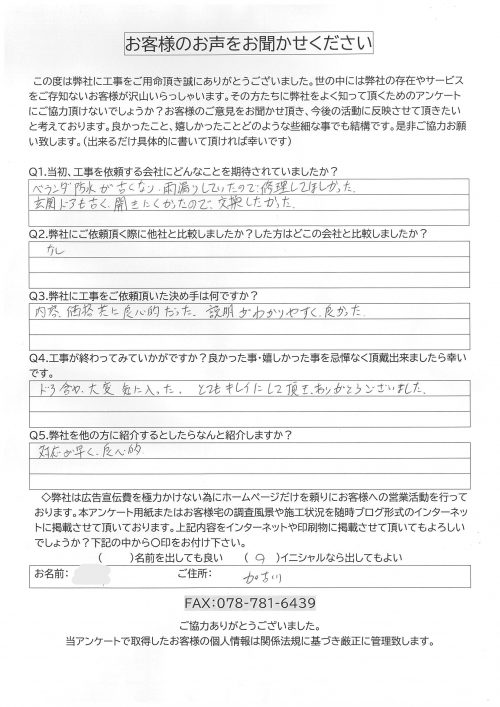 お客様のお声をお聞かせください
この度は弊社に工事をご用命頂き誠にありがとうございました。世の中には弊社の存在やサービス
をご存知ないお客様が沢山いらっしゃいます。その方たちに弊社をよく知って頂くためのアンケート
にご協力頂けないでしょうか？お客様のご意見をお聞かせ頂き、今後の活動に反映させて頂きたい
と考えております。良かったこと、嬉しかったことどのような些細な事でも結構です。是非ご協力お願
い致します。（出来るだけ具体的に書いて頂ければ幸いです）
Q1.当初、工事を依頼する会社にどんなことを期待されていましたか？
ベランダ防水が古くなり、雨漏りしていたので、修理してほしかった。
玄関ドアも古く、開きにくかったので、交換したかった。
Q2.弊社にご依頼頂く際に他社と比較しましたか？した方はどこの会社と比較しましたか？
なし
Q3.弊社に工事をご依頼頂いた決め手は何ですか？
内容、価格共に良心的だった。説明がわかりやすく、良かった。
Q4.工事が終わってみていかがですか？良かった事・嬉しかった事を忌憚なく頂戴出来ましたら幸い
です。
ドア含め、大変気に入った。とてもキレイにして頂き、ありがとうございました。
Q5.弊社を他の方に紹介するとしたらなんと紹介しますか？
対応が早く、良心的
◇弊社は広告宣伝費を極力かけない為にホームページだけを頼りにお客様への営業活動を行って
おります。本アンケート用紙またはお客様宅の調査風景や施工状況を随時ブログ形式のインターネッ
トに掲載させて頂いております。上記内容をインターネットや印刷物に掲載させて頂いてもよろしい
でしょうか？下記の中から〇印をお付け下さい。
（　　）名前を出しても良い　（ ○ ）イニシャルなら出してもよい
お名前：　　ご住所：　加古川
FAX：078-781-6439
ご協力ありがとうございました。
当アンケートで取得したお客様の個人情報は関係法規に基づき厳正に管理致します。